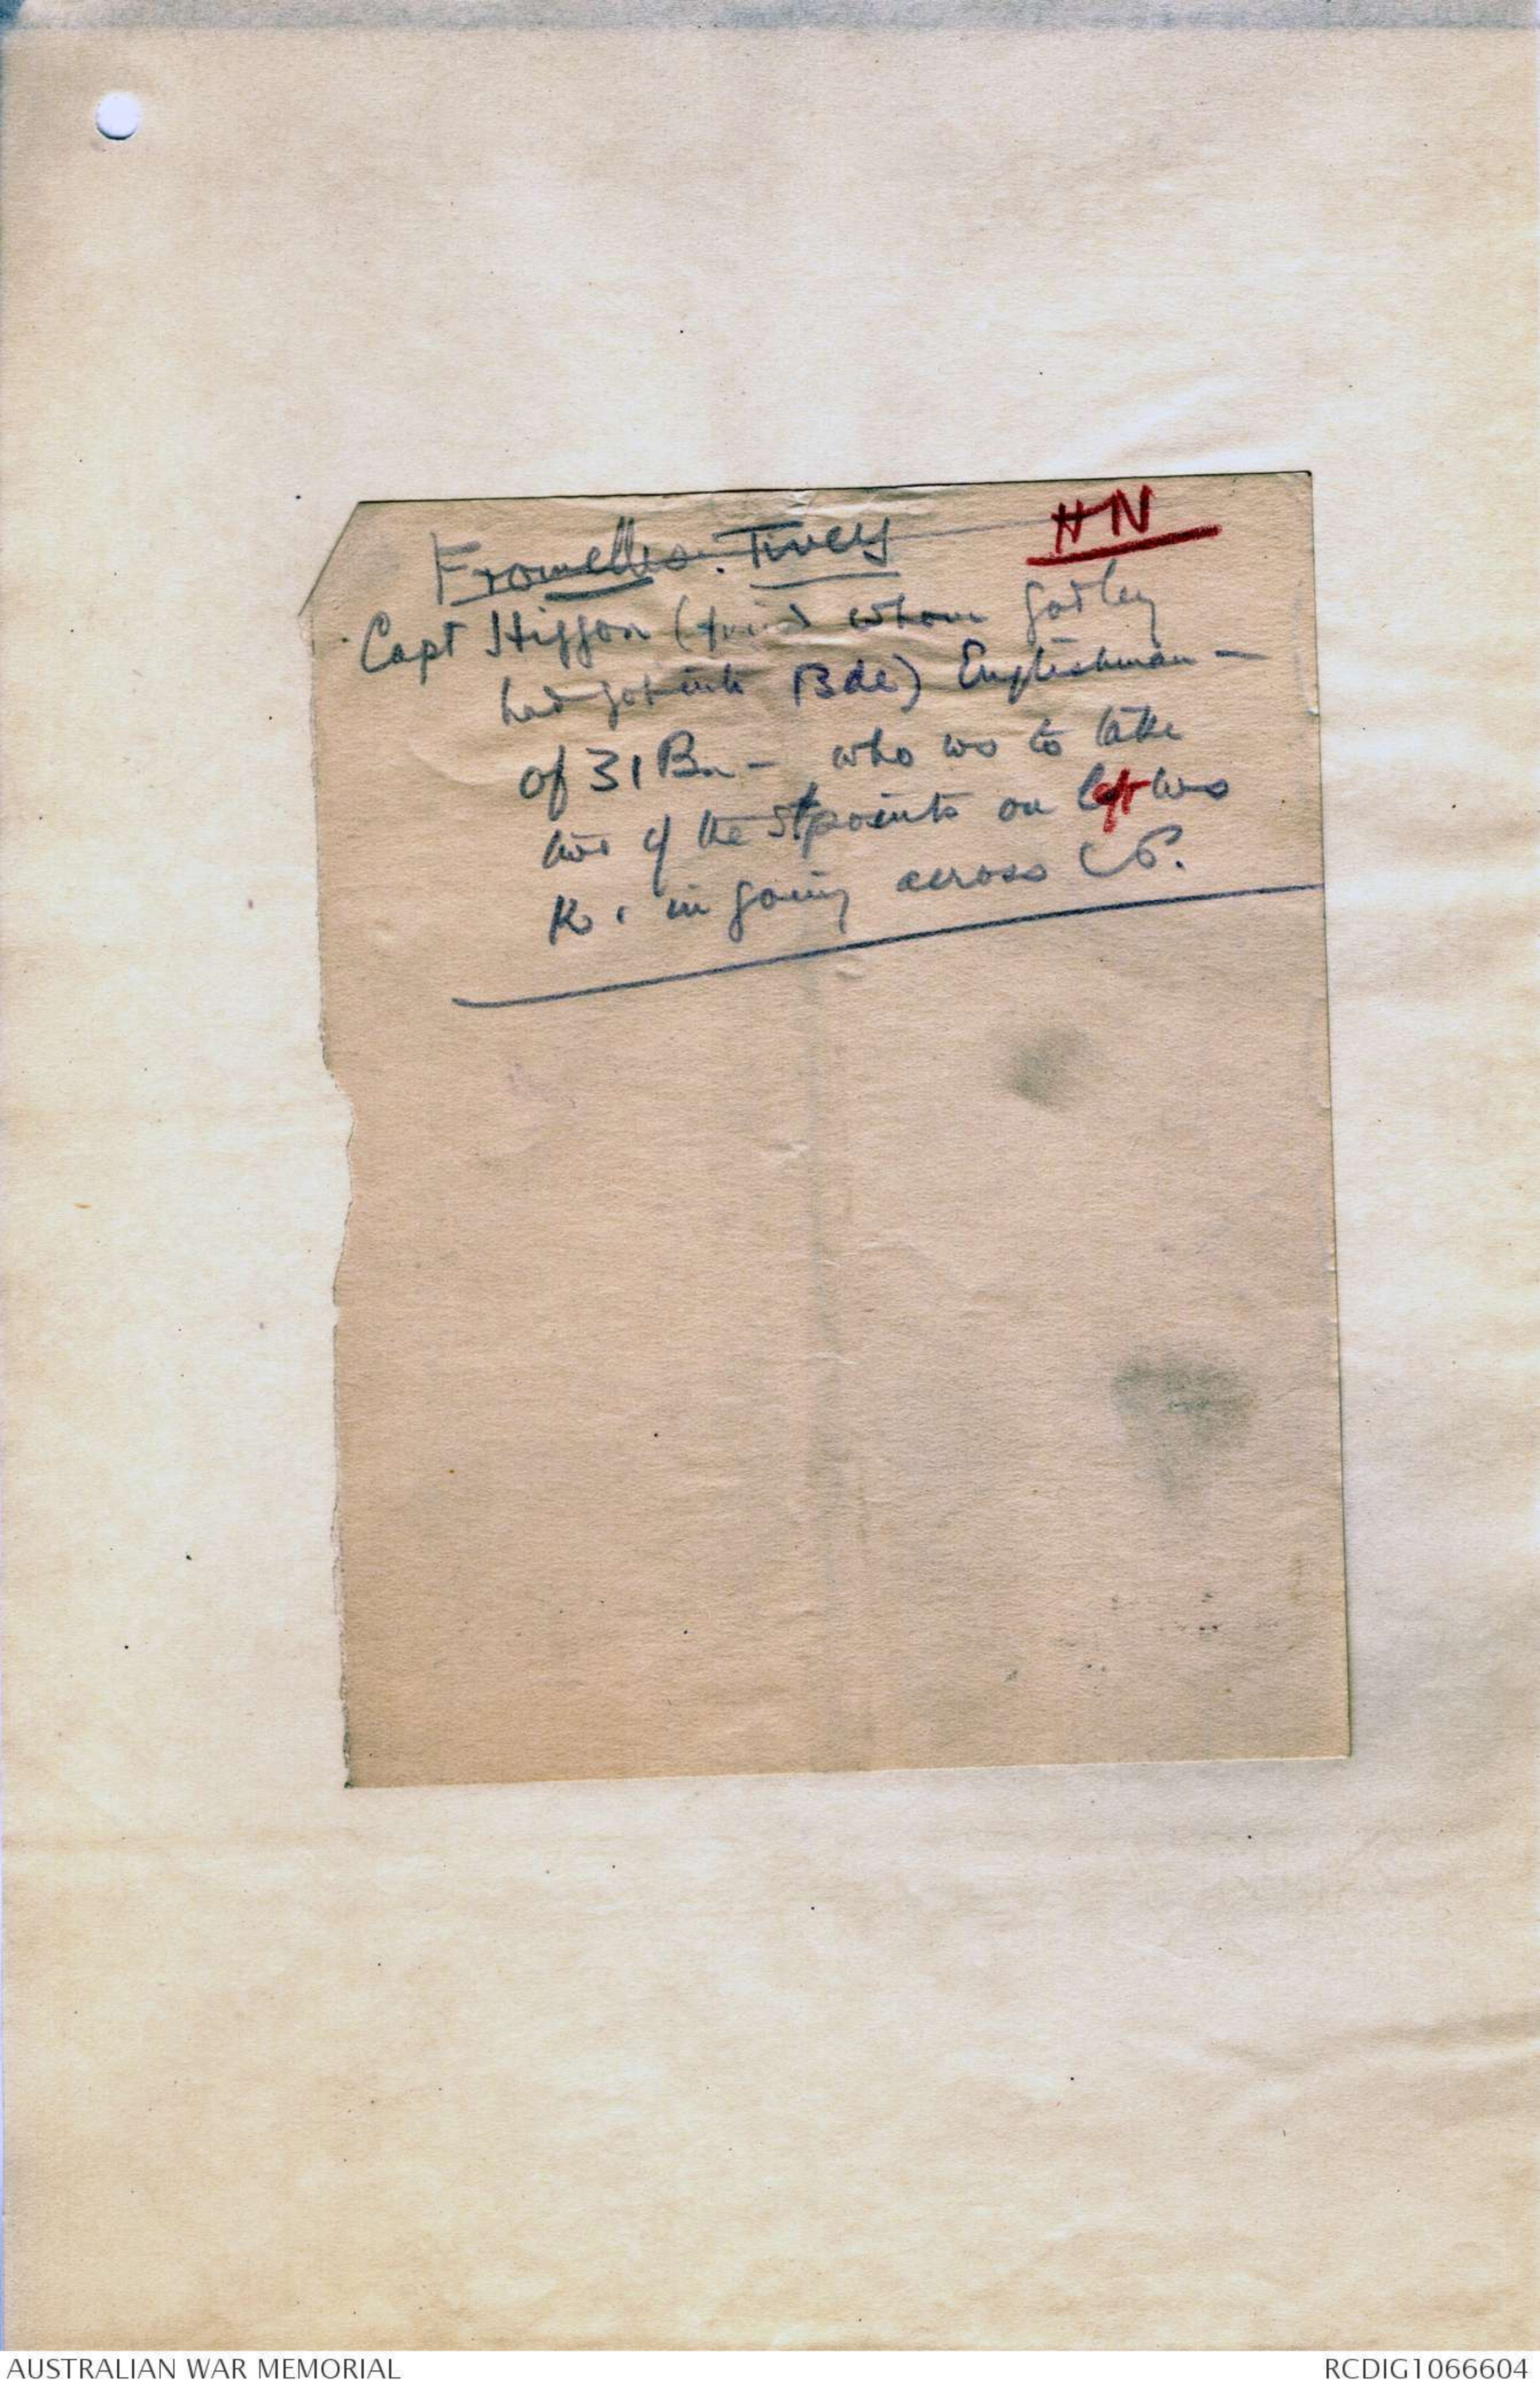 Fromelles. Tivey HN
Capt Higgon (friend whom Godley
had got into Bde) Englishman -
of 31 Bn - who ws to take
two of the Stpoints on left ws
K. in going across
AUSTRALIAN WAR MEMORIAL
RCDIG1066604